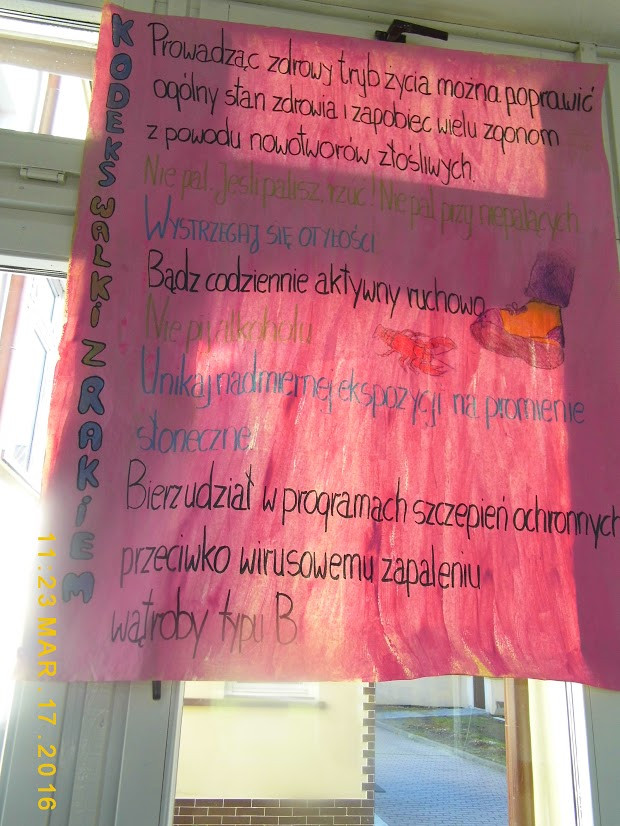 KODEKS WALKI Z RAKIEM
Prowadząc zdrowy tryb życia można poprawić
ogólny stan zdrowia i zapobiec wielu zgonom
z powodu nowotworów złośliwych.
Nie pal. Jeśli palisz, rzuć! Nie pal przy niepalących
WYSTRZEGAJ SIĘ OTYŁOŚCI
Bądz codziennie aktywny ruchowo
Nie pij alkoholu
Unikaj nadmiernej ekspozycji na promienie
słoneczne
Bierz udział w programach szczepień ochronnych
przeciwko wirusowemu zapaleniu
wątroby typu B
11:23 MAR 17.2016